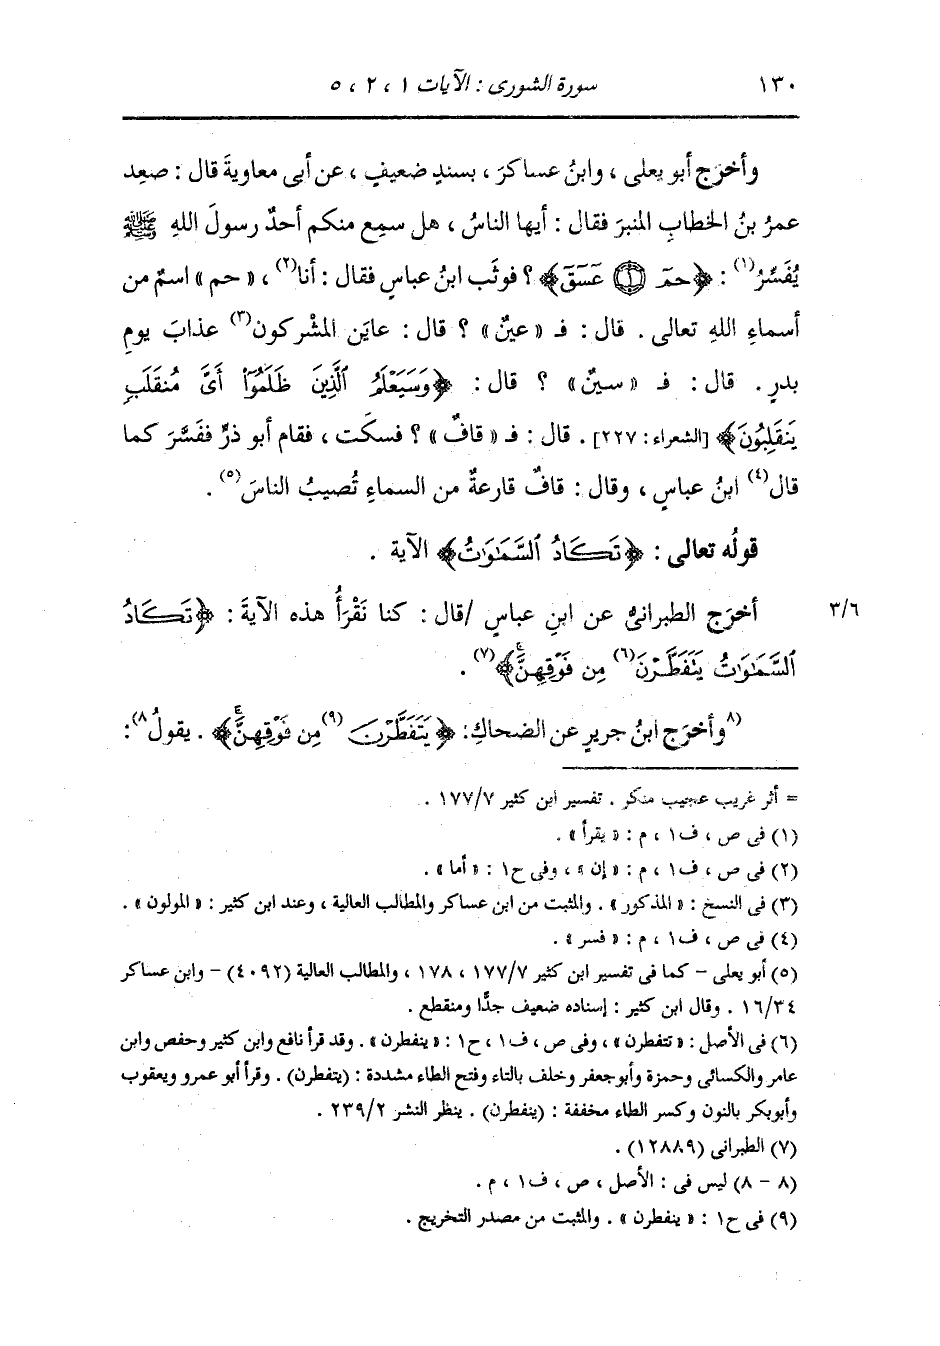 ١٣٠ سورة الشورى : الآيات ١ ، ٢ ، ٥
وأخرَج أبو يعلى ، وابنُ عساكرَ ، بسندٍ ضعيفٍ ، عن أبى معاويةَ قال : صعِد
عمرُ بنُ الخطابِ المنبرَ فقال : أيها الناسُ ، هل سمِع منكم أحدٌ رسولَ اللهِ ﷺ
يُفَسِّرُ(١) : ﴿حمٓ ۝١ عٓسٓقٓ﴾ ؟ فوثَب ابنُ عباسٍ فقال : أنا(٢) ، « حم » اسمٌ من
أسماءِ اللهِ تعالى . قال : فـ « عينٌ » ؟ قال : عايَن المشْركون(٣) عذابَ يومِ
بدرٍ . قال : فـ « سينٌ » ؟ قال : ﴿وَسَيَعْلَمُ ٱلَّذِينَ ظَلَمُوٓاْ أَىَّ مُنقَلَبٍ
يَنقَلِبُونَ﴾ [الشعراء : ٢٢٧] . قال : فـ « قافٌ » ؟ فسكَت ، فقام أبو ذرٍّ ففَسَّرَ كما
قال(٤) ابنُ عباسٍ ، وقال : قافٌ قارعةٌ من السماءِ تُصيبُ الناسَ(٥) .
قولُه تعالى : ﴿تَكَادُ ٱلسَّمَٰوَٰتُ﴾ الآية .
٣/٦ أخرَج الطبرانىُّ عن ابنِ عباسٍ /قال : كنا نَقْرَأُ هذه الآيةَ : ﴿تَكَادُ
ٱلسَّمَٰوَٰتُ يَتَفَطَّرْنَ(٦) مِن فَوْقِهِنَّۚ﴾(٧) .
(٨وأخرَج ابنُ جريرٍ عن الضحاكِ: ﴿يَتَفَطَّرْنَ(٩) مِن فَوْقِهِنَّۚ﴾ . يقولُ٨):
= أثر غريب عجيب منكر . تفسير ابن كثير ١٧٧/٧ .
(١) فى ص ، ف١ ، م : « يقرأ » .
(٢) فى ص ، ف١ ، م : « إن » ، وفى ح١ : « أما » .
(٣) فى النسخ : « المذكور » . والمثبت من ابن عساكر والمطالب العالية ، وعند ابن كثير : « المولون » .
(٤) فى ص ، ف١ ، م : « فسر » .
(٥) أبو يعلى - كما فى تفسير ابن كثير ١٧٧/٧ ، ١٧٨ ، والمطالب العالية (٤٠٩٢) - وابن عساكر
١٦/٣٤ . وقال ابن كثير : إسناده ضعيف جدًّا ومنقطع .
(٦) فى الأصل : « تتفطرن » ، وفى ص ، ف١ ، ح١ : « ينفطرن » . وقد قرأ نافع وابن كثير وحفص وابن
عامر والكسائى وحمزة وأبوجعفر وخلف بالتاء وفتح الطاء مشددة : (يتفطرن) . وقرأ أبو عمرو ويعقوب
وأبوبكر بالنون وكسر الطاء مخففة : (ينفطرن) . ينظر النشر ٢٣٩/٢ .
(٧) الطبرانى (١٢٨٨٩) .
(٨ - ٨) ليس فى : الأصل ، ص ، ف١ ، م .
(٩) فى ح١ : « ينفطرن » . والمثبت من مصدر التخريج .